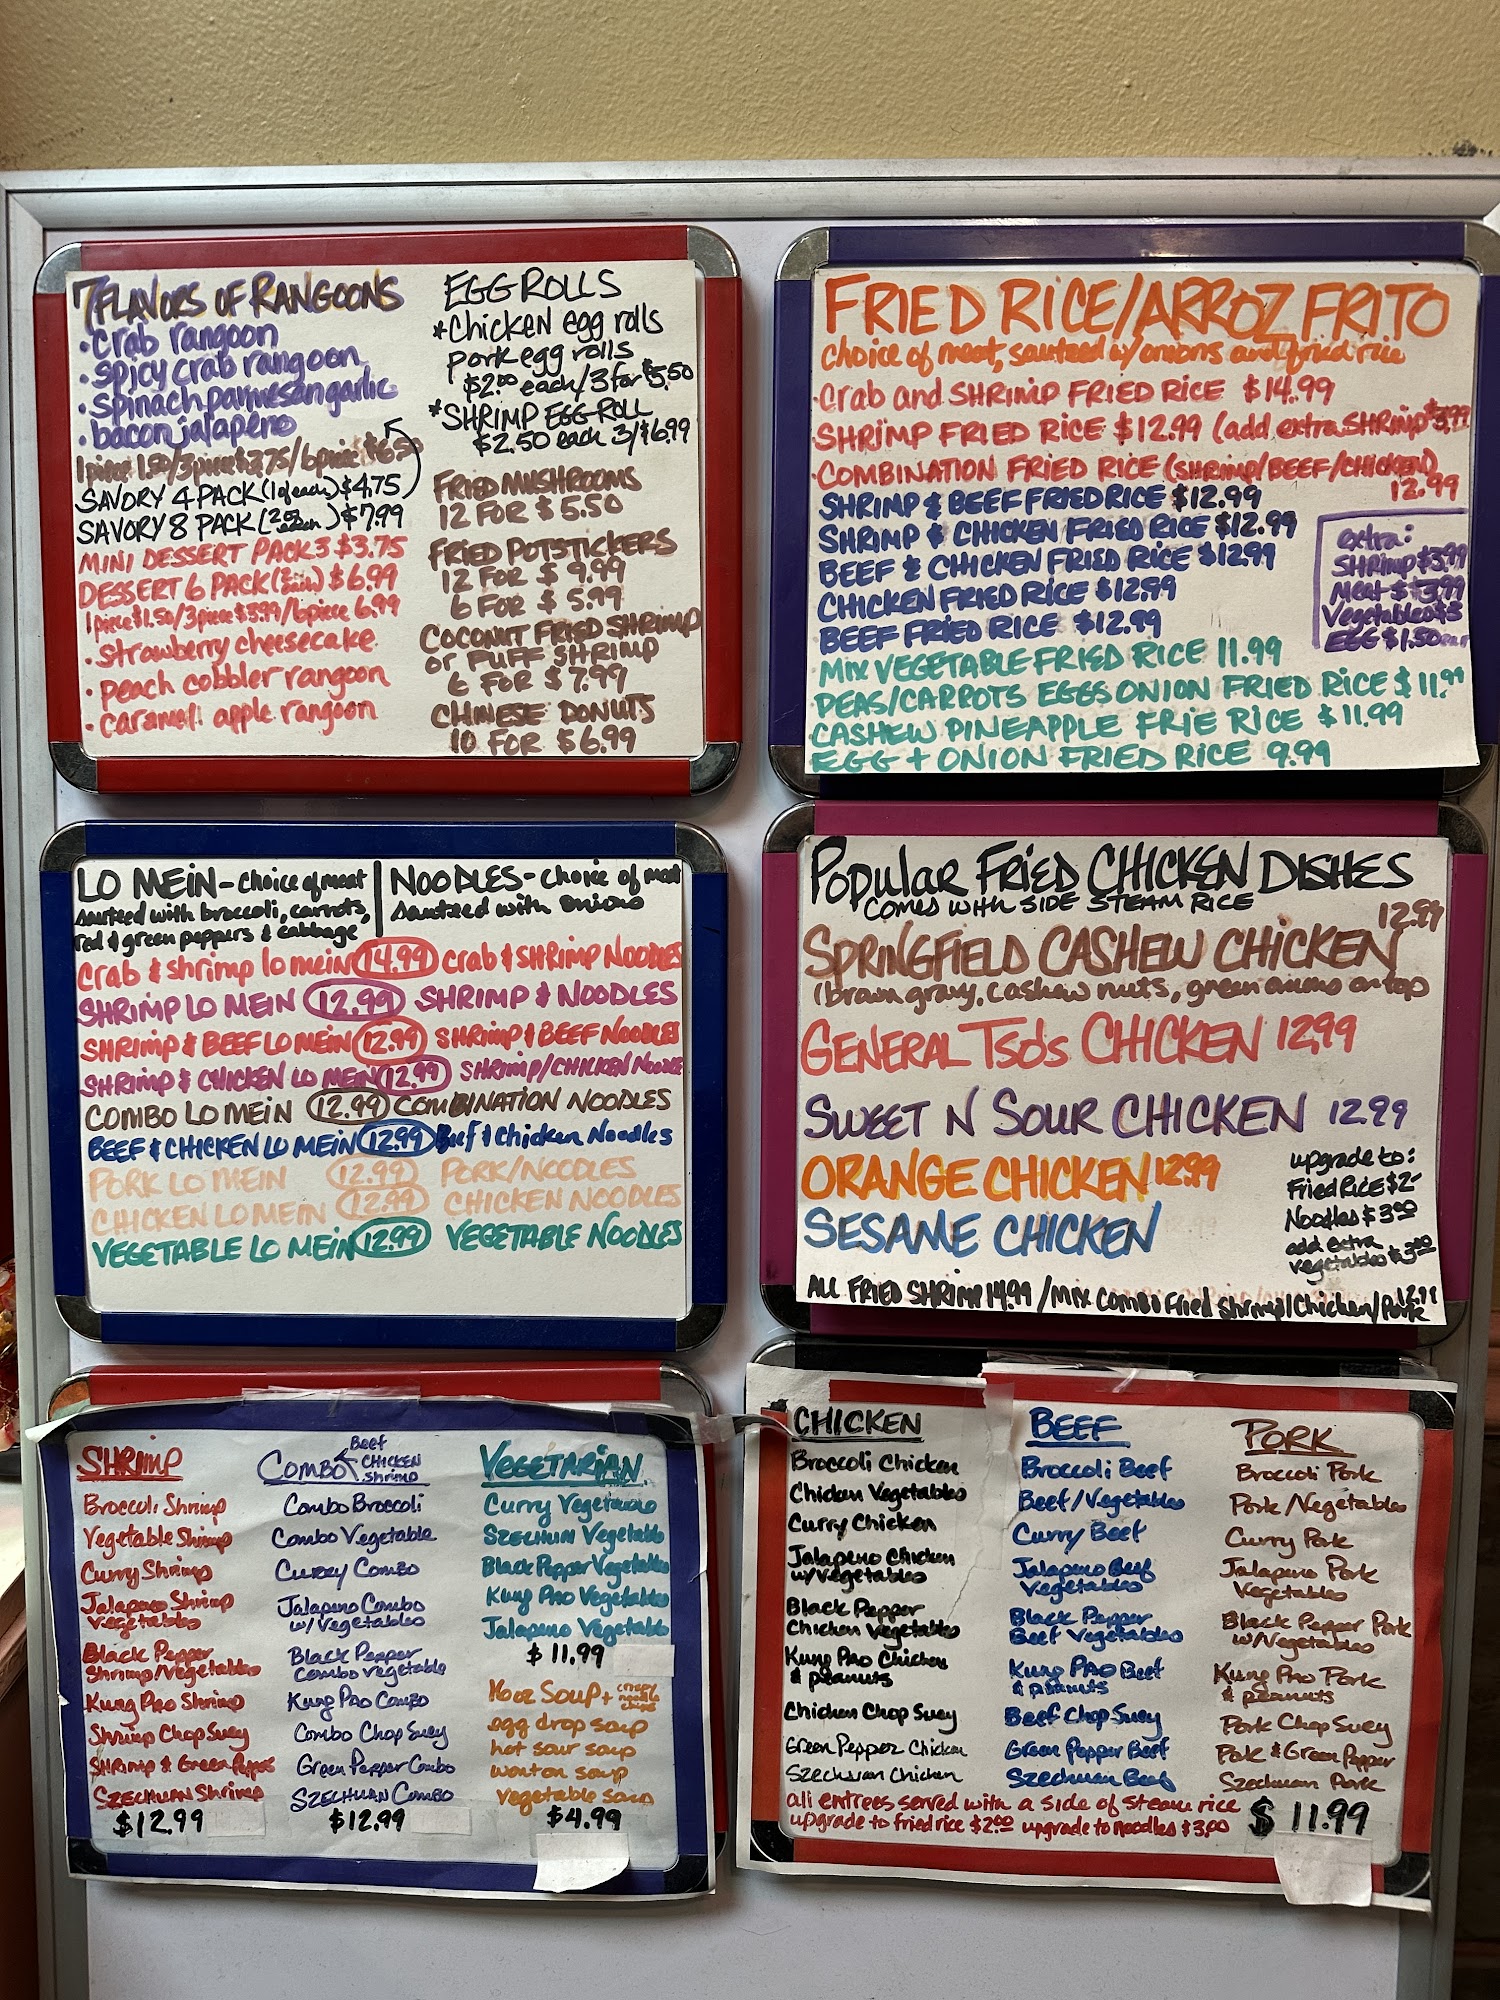 7 FLAVORS OF RANGOONS
• crab rangoon
• spicy crab rangoon
• spinach parmesan garlic
• bacon jalapeno
1 piece 1.50/3 piece $3.75/6 piece $6.50
SAVORY 4 PACK (1 of each) $4.75
SAVORY 8 PACK (2 each) $7.99
MINI DESSERT PACK 3 $3.75
DESSERT 6 PACK (2 each) $6.99
1 piece $1.50/3 piece $3.99/6 piece 6.99
• strawberry cheesecake
• peach cobbler rangoon
• caramel apple rangoon
EGG ROLLS
*Chicken egg rolls
pork egg rolls
$2.00 each/3 for $5.50
*SHRIMP EGG ROLL
$2.50 each 3/$6.99
FRIED MUSHROOMS
12 FOR $5.50
FRIED POTSTICKERS
12 FOR $9.99
6 FOR $5.99
COCONUT FRIED SHRIMP
or PUFF SHRIMP
6 FOR $7.99
CHINESE DONUTS
10 FOR $6.99
FRIED RICE/ARROZ FRITO
choice of meat, sauteed w/ onions and fried rice
Crab and SHRIMP FRIED RICE $14.99
SHRIMP FRIED RICE $12.99 (add extra SHRIMP $3.99
COMBINATION FRIED RICE (SHRIMP/BEEF/CHICKEN)
12.99
SHRIMP & BEEF FRIED RICE $12.99
SHRIMP & CHICKEN FRIED RICE $12.99
BEEF & CHICKEN FRIED RICE $12.99
CHICKEN FRIED RICE $12.99
BEEF FRIED RICE $12.99
MIX VEGETABLE FRIED RICE 11.99
PEAS/CARROTS EGGS ONION FRIED RICE $11.99
CASHEW PINEAPPLE FRIE RICE $11.99
EGG + ONION FRIED RICE 9.99
extra:
SHRIMP $3.99
Meat $3.99
Vegetables $3
EGG $1.50
LO MEIN - choice of meat
sauteed with broccoli, carrots,
red & green peppers & cabbage
NOODLES - choice of meat
sauteed with onions
Crab & shrimp lo mein 14.99 crab & SHRIMP NOODLES
SHRIMP LO MEIN 12.99 SHRIMP & NOODLES
SHRIMP & BEEF LO MEIN 12.99 SHRIMP & BEEF NOODLES
SHRIMP & CHICKEN LO MEIN 12.99 SHRIMP/CHICKEN NOODLE
COMBO LO MEIN 12.99 COMBINATION NOODLES
BEEF & CHICKEN LO MEIN 12.99 Beef & Chicken Noodles
PORK LO MEIN 12.99 PORK/NOODLES
CHICKEN LO MEIN 12.99 CHICKEN NOODLES
VEGETABLE LO MEIN 12.99 VEGETABLE NOODLES
Popular Fried CHICKEN DISHES
COMES WITH SIDE STEAM RICE
12.99
SPRINGFIELD CASHEW CHICKEN
(brown gravy, cashew nuts, green onions on top
GENERAL Tso's CHICKEN 12.99
SWEET N SOUR CHICKEN 12.99
ORANGE CHICKEN 12.99
SESAME CHICKEN
upgrade to:
Fried Rice $2-
Noodles $3.00
add extra
vegetables $3.00
ALL FRIED SHRIMP 14.99 / Mix combo Fried Shrimp/Chicken/Pork 12.99
SHRIMP
Broccoli Shrimp
Vegetable Shrimp
Curry Shrimp
Jalapeno Shrimp
Vegetables
Black Pepper
Shrimp/Vegetables
Kung Pao Shrimp
Shrimp Chop Suey
Shrimp & Green Pepper
Szechuan Shrimp
$12.99
COMBO Beef
CHICKEN
Shrimp
Combo Broccoli
Combo Vegetable
Curry Combo
Jalapeno Combo
w/Vegetables
Black Pepper
Combo Vegetable
Kung Pao Combo
Combo Chop Suey
Green Pepper Combo
Szechuan Combo
$12.99
VEGETARIAN
Curry Vegetables
Szechuan Vegetable
Black Pepper Vegetables
Kung Pao Vegetables
Jalapeno Vegetable
$11.99
16 oz Soup + crispy
noodle
chips
egg drop soup
hot sour soup
wonton soup
vegetable soup
$4.99
CHICKEN
Broccoli Chicken
Chicken Vegetables
Curry Chicken
Jalapeno Chicken
w/Vegetables
Black Pepper
Chicken Vegetables
Kung Pao Chicken
& peanuts
Chicken Chop Suey
Green Pepper Chicken
Szechuan Chicken
BEEF
Broccoli Beef
Beef/Vegetables
Curry Beef
Jalapeno Beef
Vegetables
Black Pepper
Beef Vegetables
Kung Pao Beef
& peanuts
Beef Chop Suey
Green Pepper Beef
Szechuan Beef
PORK
Broccoli Pork
Pork/Vegetables
Curry Pork
Jalapeno Pork
Vegetables
Black Pepper Pork
w/Vegetables
Kung Pao Pork
& peanuts
Pork Chop Suey
Pork & Green Pepper
Szechuan Pork
all entrees served with a side of steam rice
upgrade to fried rice $2.00 upgrade to noodles $3.00
$11.99